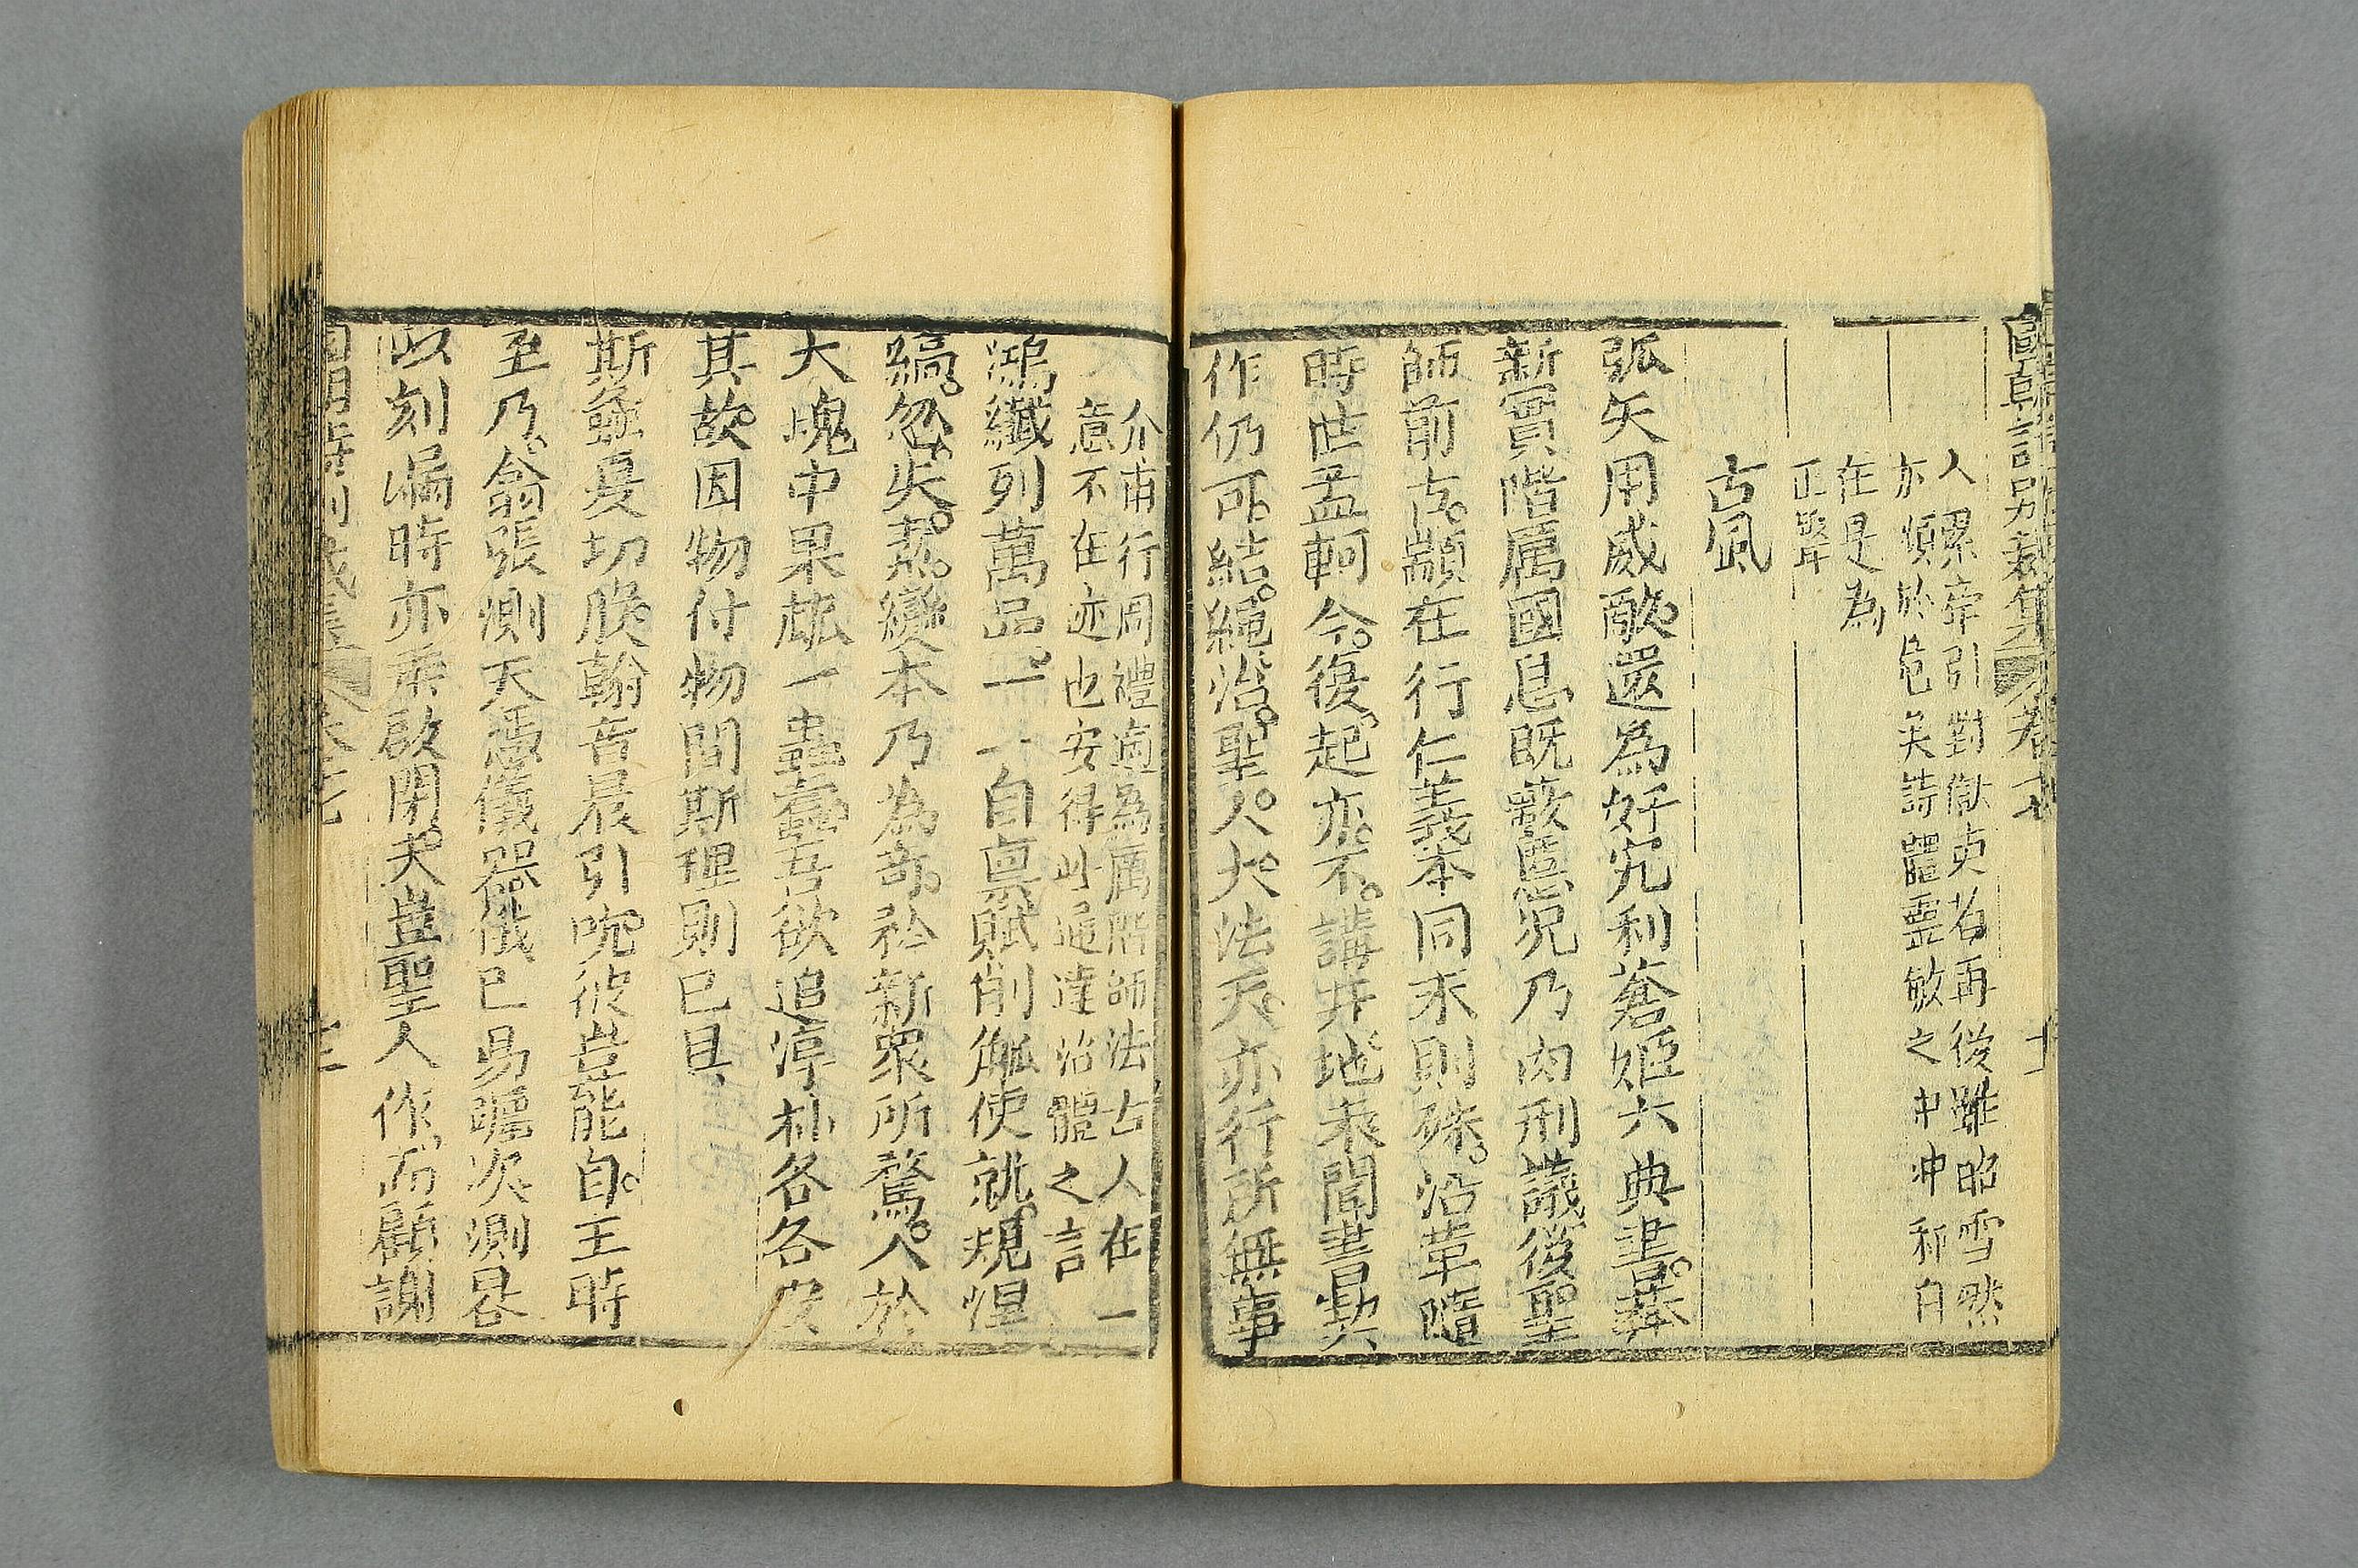 國朝詩別裁集 卷七
人羅牽引對獄吏若再後雖昭雪然
亦煩於危矣詩體靈敏之中冲和自
在是為
正聲
古風
弧矢用威敵還為奸宄利蒼姬六典書莽
新實階厲國息既竅匱究乃肉刑議後聖
師前古顓在行仁義本同末則殊沿革隨
時世孟軻今復起亦不講井地未聞書契
作仍可結繩治聖人大法天亦行所無事
介甫行周禮適為厲階師法古人在一
意不在迹也安得此通達治體之言
鴻纖列萬品一一自稟賦削觚使就規涅
縞忽失素變本乃為奇矜新眾所驚人於
大塊中果蓏一蟲蠹吾欲追淳朴各各安
其故因物付物間斯理則已具
斯螽夏切股翰音晨引吭彼豈能自主時
至乃翕張測天憑儀器俄已易躔次測晷
以刻漏時亦乖啟閉夫豈聖人作而顧謝